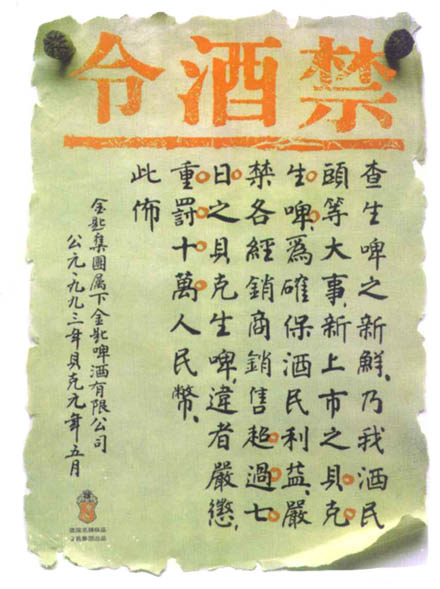 禁酒令
查生啤之新鮮，乃我酒民
頭等大事，新上市之貝克
生啤，爲確保酒民利益，嚴
禁各經銷商銷售超過七
日之貝克生啤，違者嚴懲，
重罰十萬人民幣、
此佈
金匙集團属下金匙啤酒有限公司
公元一九九三年貝克元年五月